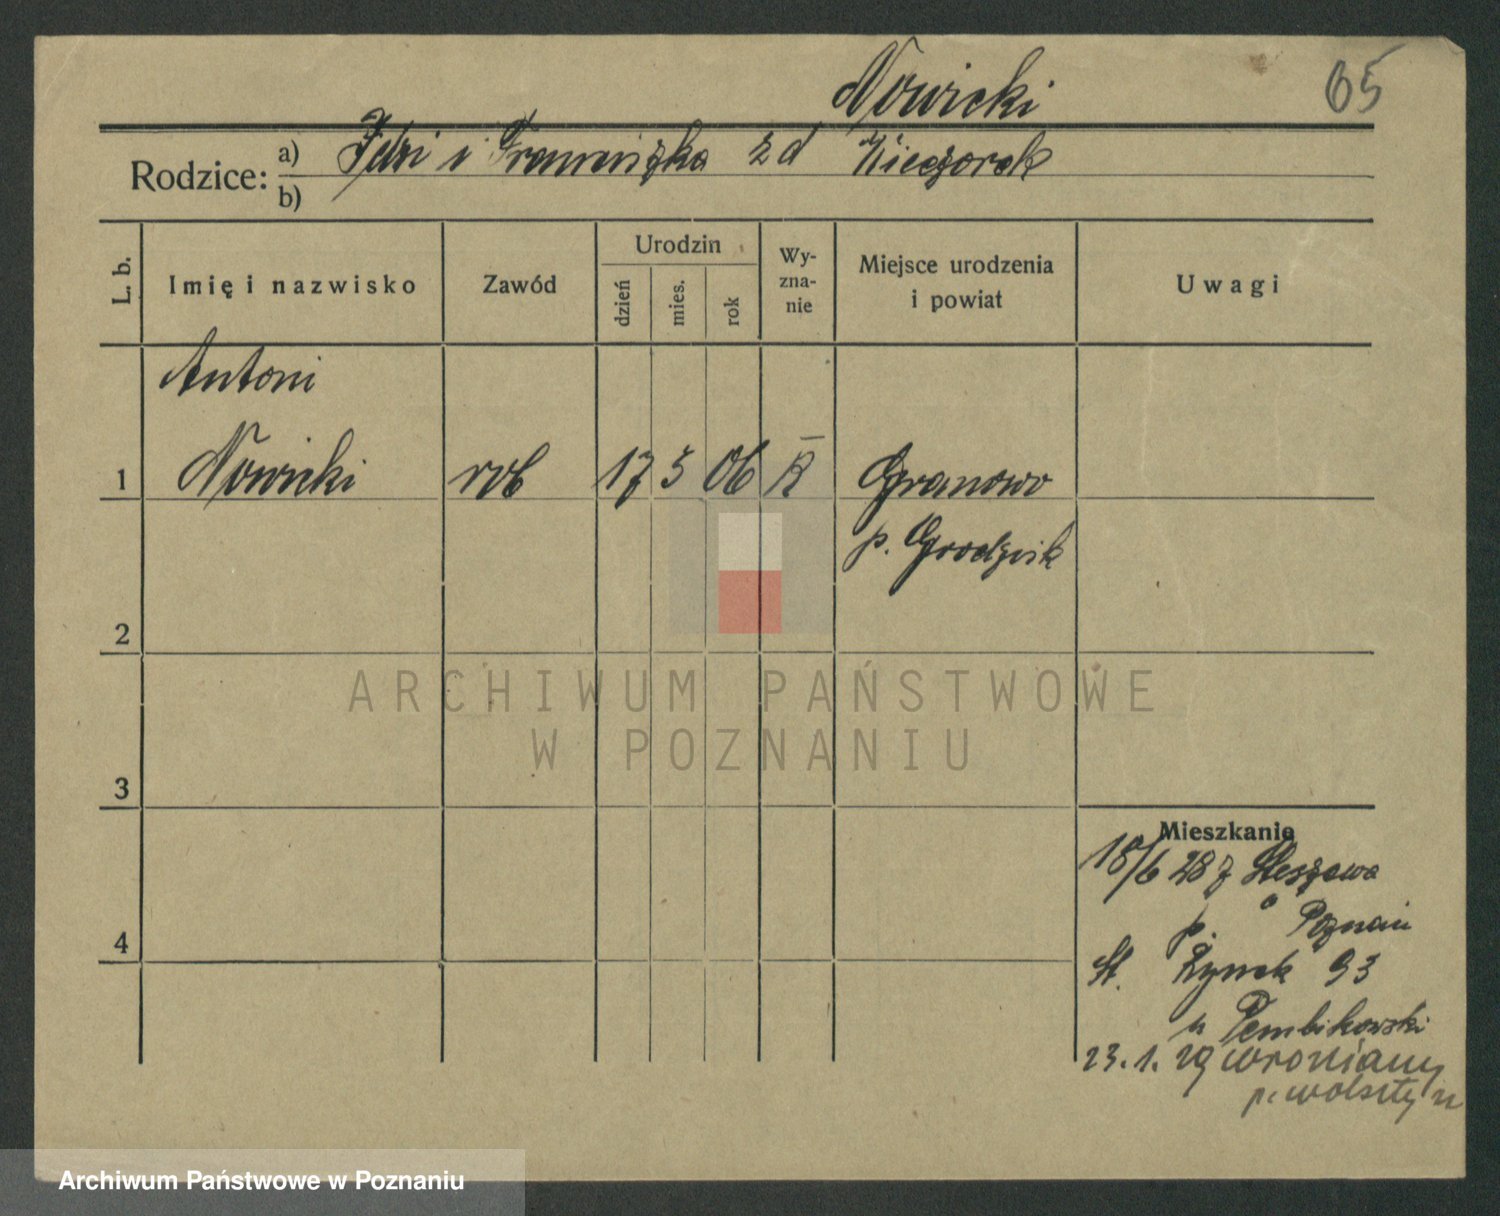 Nowicki
65
Rodzice: a) i Franciszka z d Wieczorek
b)
L. b.
Imię i nazwisko
Zawód
Urodzin
dzień
mies.
rok
Wy-
zna-
nie
Miejsce urodzenia
i powiat
Uwagi
Antoni
1 Nowicki rob 17 5 06 Granowo
p. Grodzisk
2
3
4
Mieszkanie
28 z
p. Poznań
St. Rynek 93
u
23.1.29 Wroniawy
p. Wolsztyn
ARCHIWUM PAŃSTWOWE
W POZNANIU
Archiwum Państwowe w Poznaniu